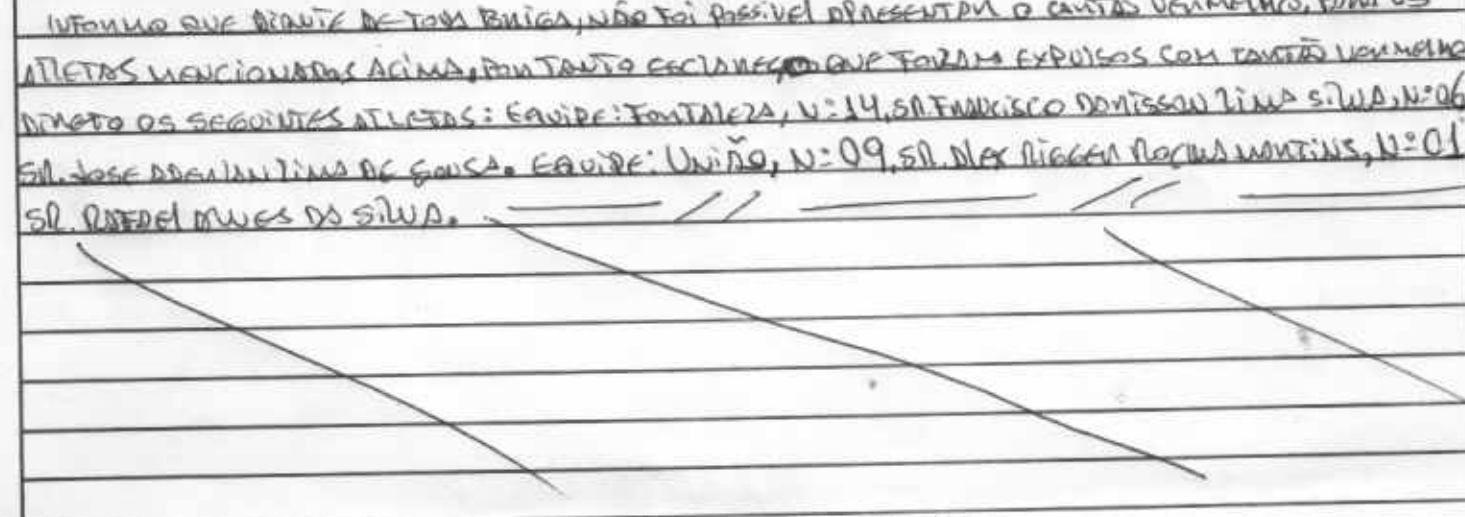 INFORMO QUE DIANTE DE TODA BRIGA, NÃO FOI POSSIVEL APRESENTAR O CARTÃO VERMELHO, PARA OS
ATLETAS MENCIONADOS ACIMA, PORTANTO ESCLAREÇO QUE FORAM EXPULSOS COM CARTÃO VERMELHO
DIRETO OS SEGUINTES ATLETAS: EQUIPE: FORTALEZA, Nº 14, SR. FRANCISCO DONISSON LIMA SILVA, Nº 06
SR. JOSE LIMA DE SOUSA. EQUIPE: UNIÃO, Nº 09, SR. ALEX ROCHA MARTINS, Nº 01
SR. RAFAEL ALVES DA SILVA.